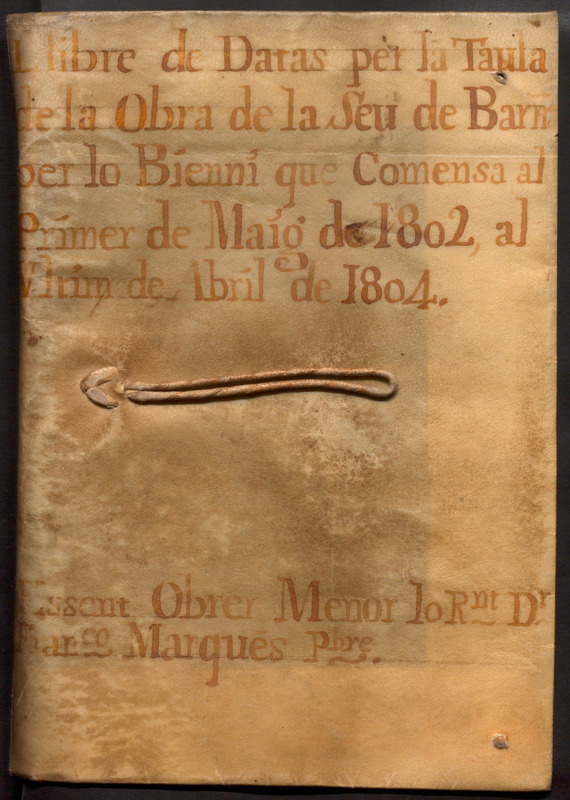 Llibre de Datas per la Taula
de la Obra de la Seu de Barna
per lo Bienni que Comensa al
Primer de Maig de 1802, al
Vltim de Abril de 1804.
Essent Obrer Menor lo Rnt Dr
Franco Marques Pbre.